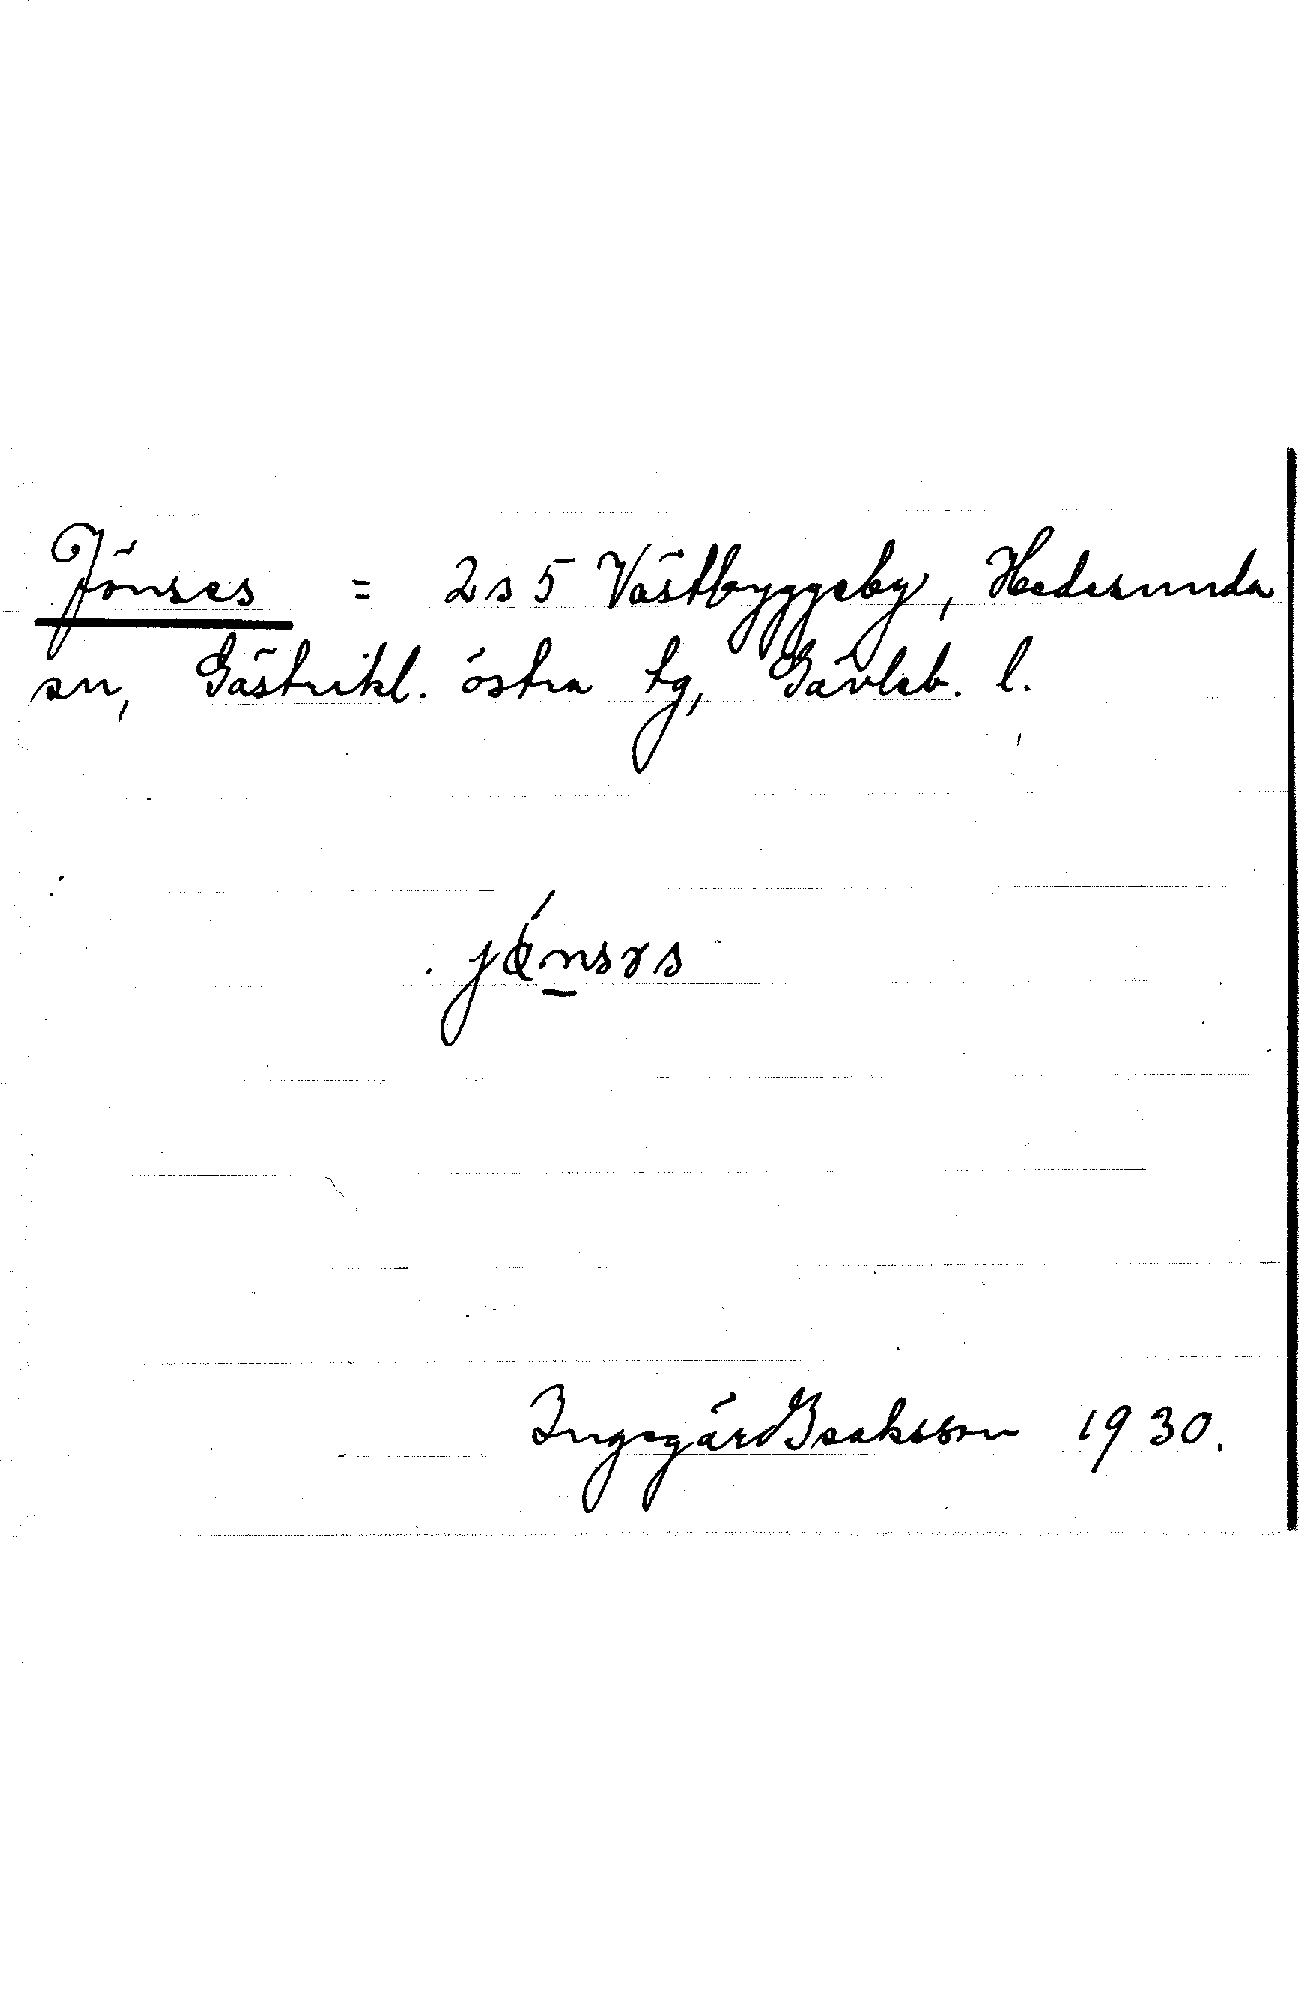 Jönses = 2 s 5 Västbyggeby, Hedesunda
sn, Gästrikl. östra tg, Gävleb. l.
Ingegärd Isaksson 1930.